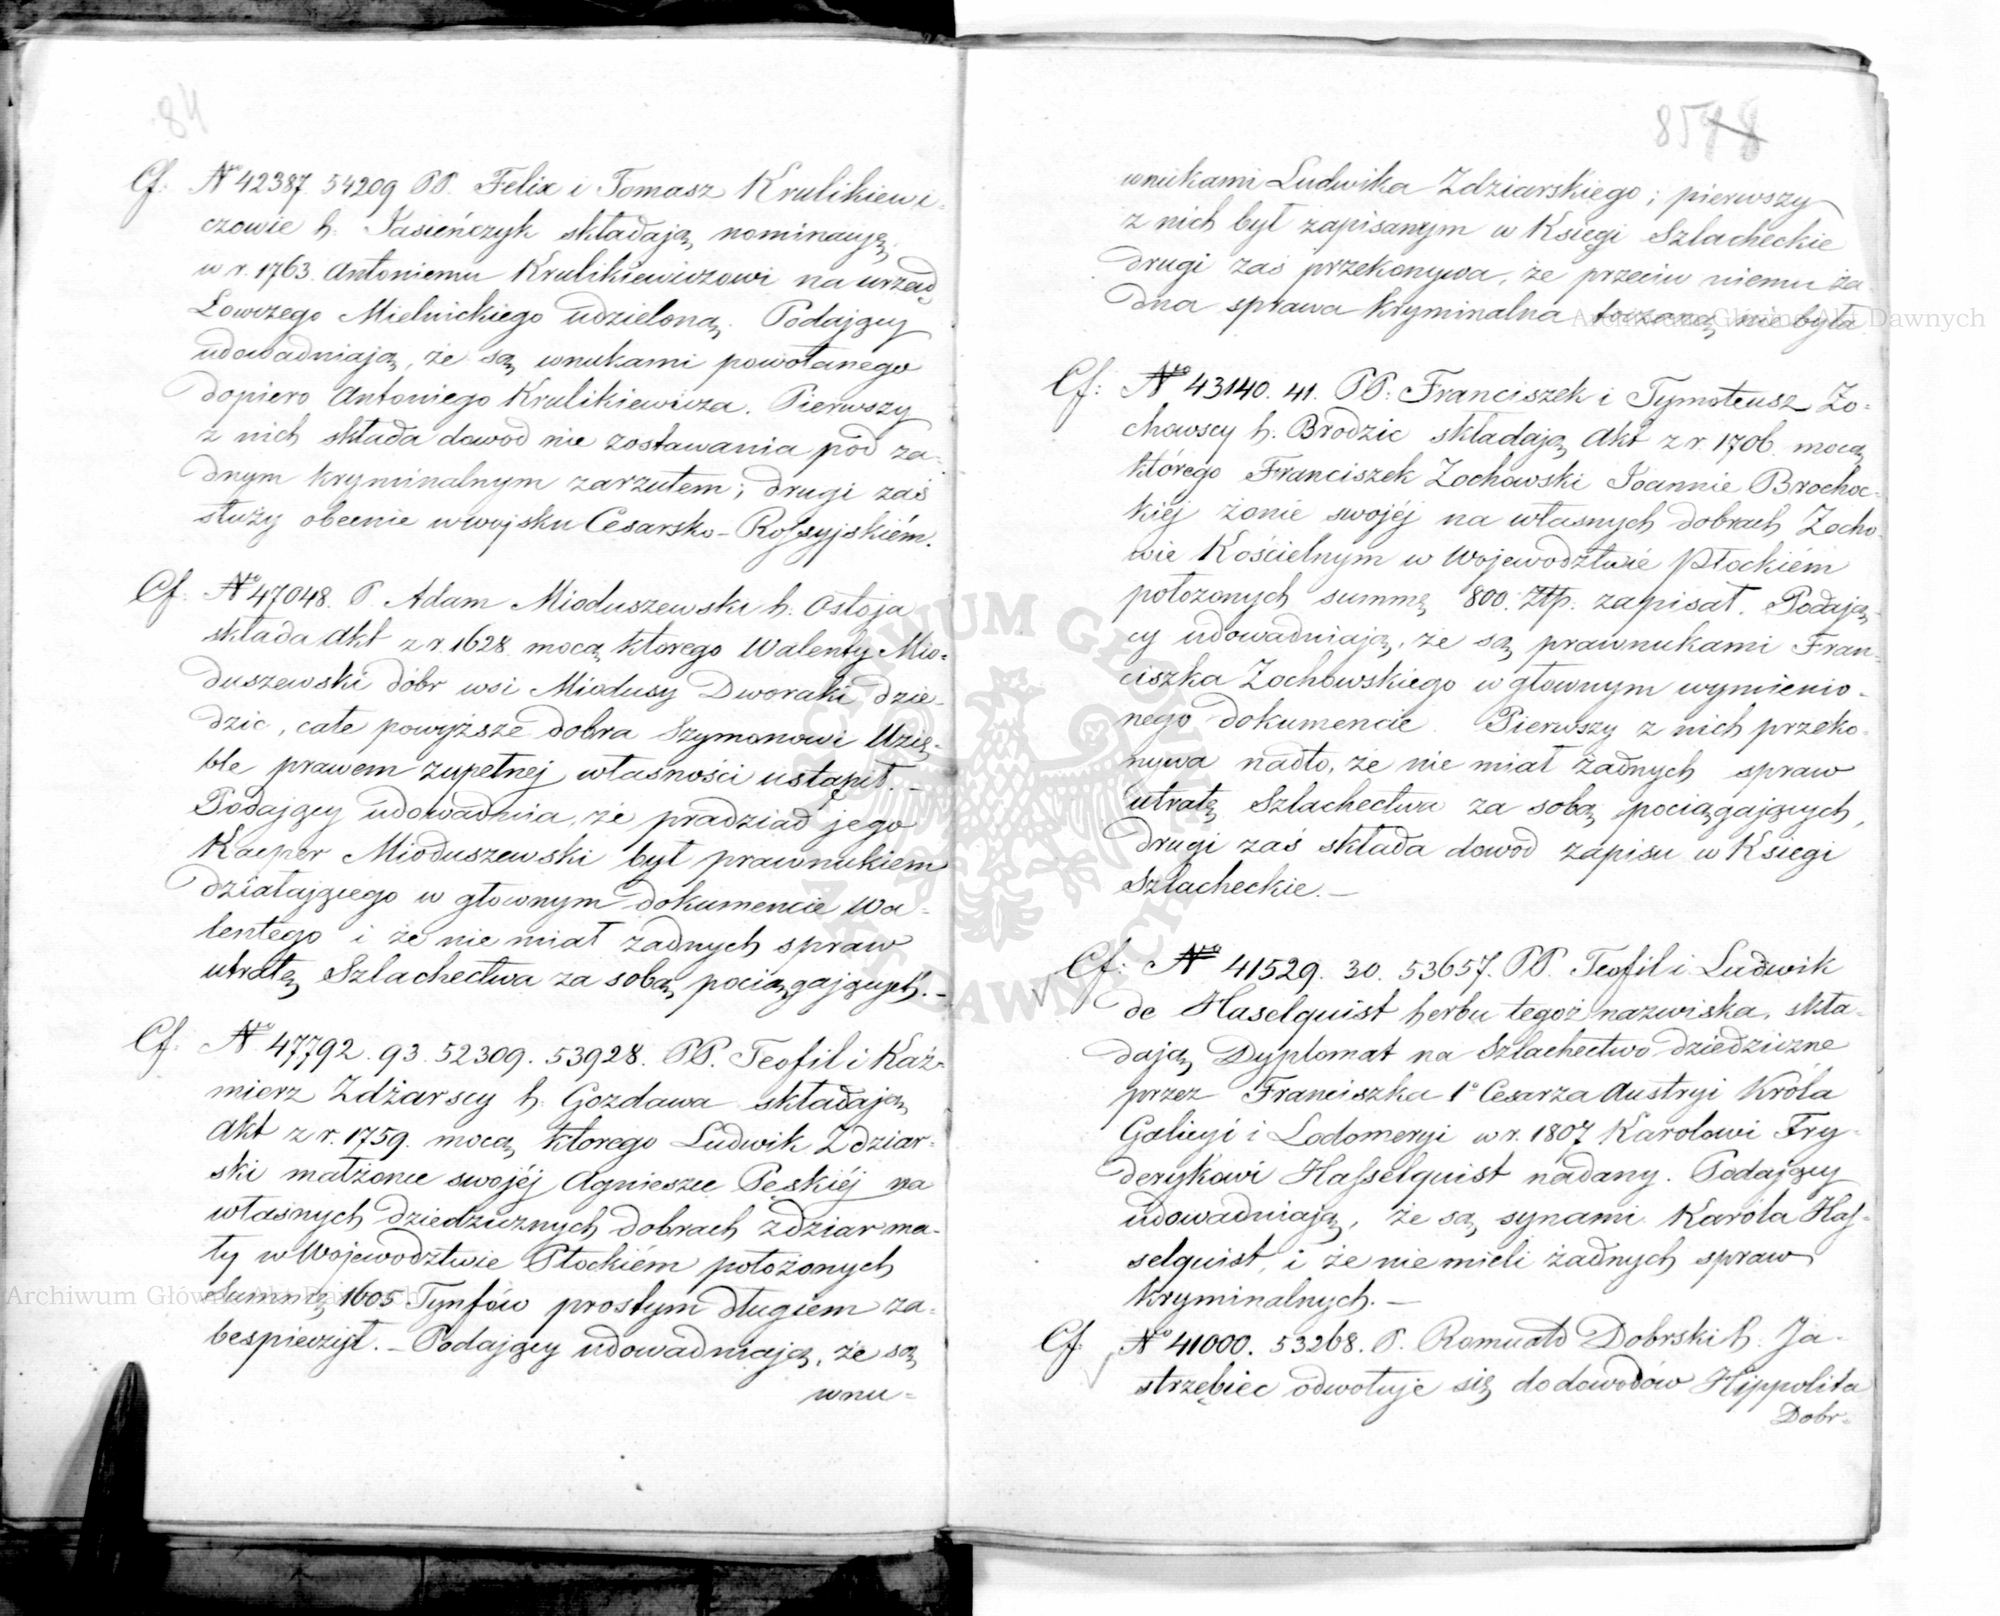 84
Cf: No 42387 54209 PP. Felix i Tomasz Krulikiewi-
czowie h. Jasieńczyk składają nominacyę,
w r. 1763. Antoniemu Krulikiewiczowi na urząd
Łowczego Mielnickiego udzieloną. Podający
udowadniają, że są wnukami powołanego
dopiero Antoniego Krulikiewicza. Pierwszy
z nich składa dowod nie zostawania pod ża-
dnym kryminalnym zarzutem; drugi zaś
służy obecnie w wojsku Cesarsko-Rossyjskiém.
Cf. No 47048. P. Adam Mioduszewski h. Ostoja
składa Akt z r. 1628 mocą ktorego Walenty Mio-
duszewski dóbr wsi Miodusy Dworaki dzie-
dzic, całe powyższe dobra Szymonowi Uzię-
ble prawem zupełnej własności ustąpił. —
Podający udowadnia, że pradziad jego
Kacper Mioduszewski był prawnukiem
działającego w głownym dokumencie Wa-
lentego i że nie miał żadnych spraw
utratę Szlachectwa za sobą pociągających. —
Cf. No 47792. 93. 52309. 53928. PP. Teofil i Kaź-
mierz Zdżarscy h. Gozdawa składają
Akt z r. 1759. mocą ktorego Ludwik Zdziar-
ski małżonce swojéj Agnieszce Pęskiéj na
własnych dziedzicznych dobrach Zdziar ma-
ły w Wojewodztwie Płockiém położonych
Summę 1605 Tynfów prostym długiem za-
bespieczył. — Podający udowadniają, że są
wnu=
85 98
wnukami Ludwika Zdziarskiego; pierwszy
z nich był zapisanym w Księgi Szlacheckie
drugi zaś przekonywa, że przeciw niemu ża-
dna sprawa kryminalna toczoną nie była
Cf: No 43140. 41. PP. Franciszek i Tymoteusz Żo-
chowscy h. Brodzic składają Akt z r. 1706. mocą
którego Franciszek Żochowski Joannie Brochoc-
kiéj żonie swojéj na własnych dobrach Żocho-
wie Kościelnym w Wojewodztwie Płockiém
położonych summę 800. Złp. zapisał. Podają-
cy udowadniają, że są prawnukami Fran-
ciszka Żochowskiego w głownym wymienio-
nego dokumencie. Pierwszy z nich przeko-
nywa nadto, że nie miał żadnych spraw
utratę Szlachectwa za sobą pociągających,
drugi zaś składa dowod zapisu w Księgi
Szlacheckie. —
Cf: No 41529. 30. 53657. PP. Teofil i Ludwik
de Haselquist herbu tegoż nazwiska, skła-
dają Dyplomat na Szlachectwo dziedziczne
przez Franciszka 1o Cesarza Austryi Króla
Galicyi i Lodomeryi w r. 1807 Karolowi Fry-
derykowi Hasselquist nadany. Podający
udowadniają, że są synami Karóla Has-
selquist, i że nie mieli żadnych spraw
kryminalnych. —
Cf. No 41000. 53268. P. Romuald Dobrski h. Ja-
strzębiec odwołuje się do dowodów Hippolita
Dobr=
Archiwum Główne Akt Dawnych
Archiwum Główne Akt Dawnych
ARCHIWUM GŁÓWNE AKT DAWNYCH